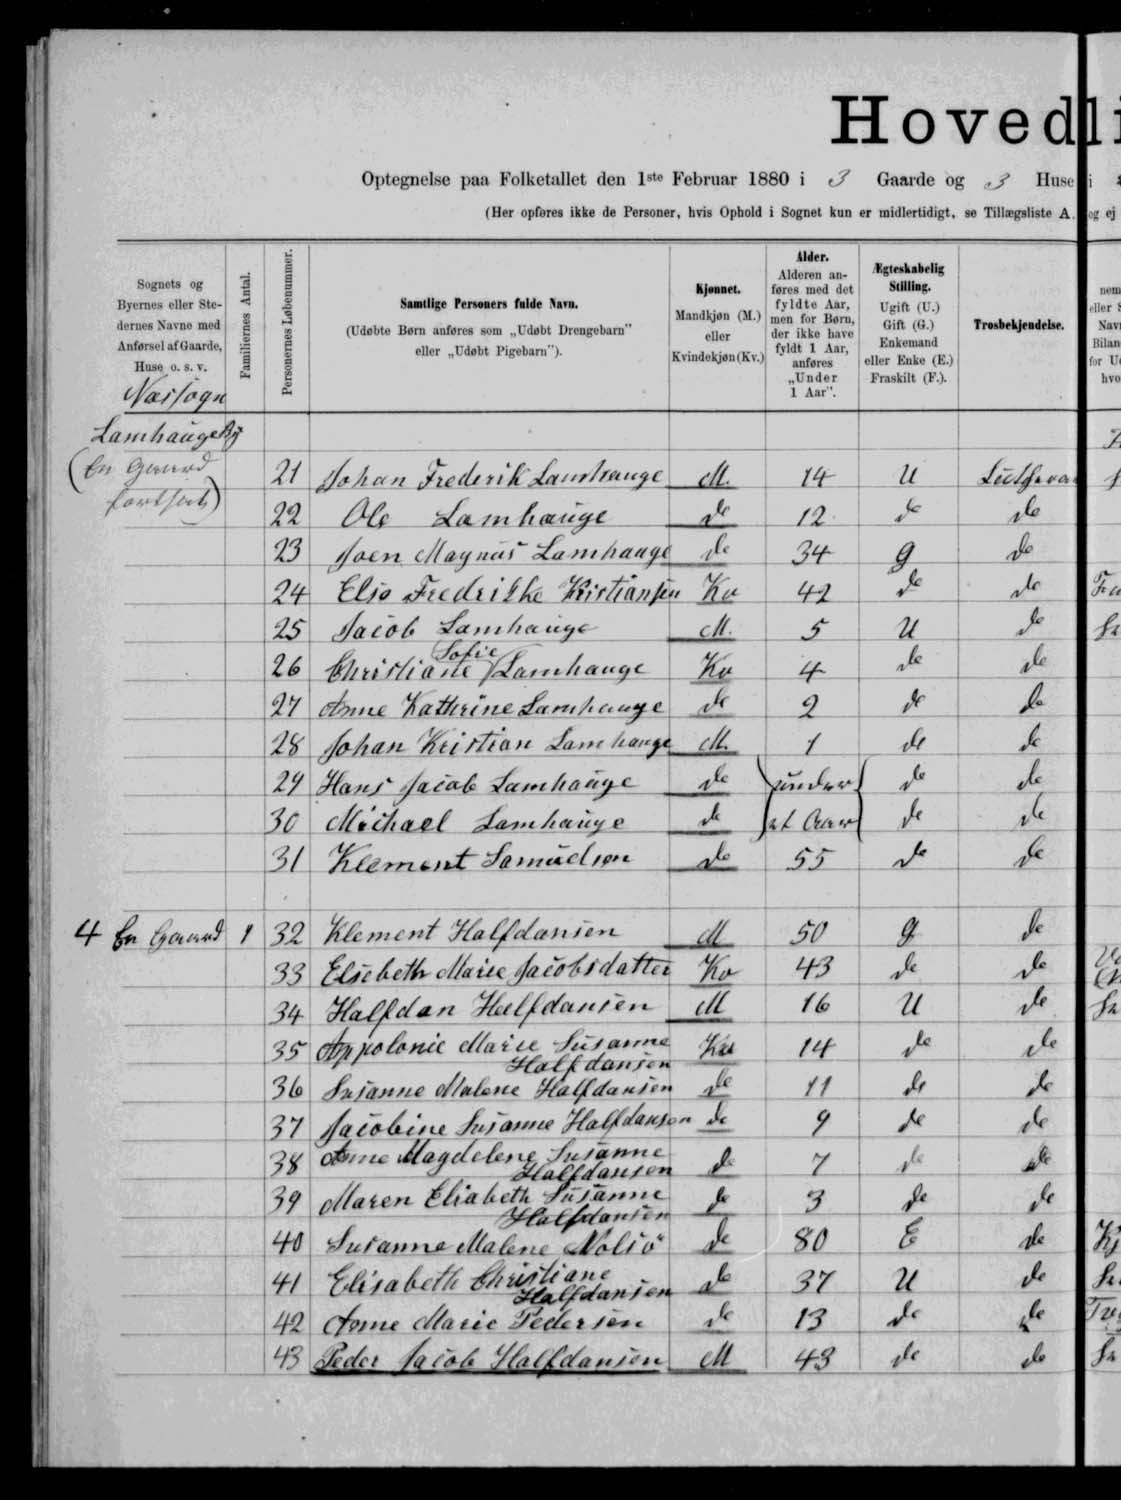 Hovedli
Optegnelse paa Folketallet den 1ste Februar 1880 i 3 Gaarde og 3 Huse i
(Her opføres ikke de Personer, hvis Ophold i Sognet kun er midlertidigt, se Tillægsliste A. og ej
Sognets og Byernes eller Ste-
dernes Navne med
Anførsel af Gaarde,
Huse o. s. v.
Næs Sogn
Familiernes Antal.
Personernes Løbenummer.
Samtlige Personers fulde Navn.
(Udøbte Børn anføres som „Udøbt Drengebarn”
eller „Udøbt Pigebarn”).
Kjønnet.
Mandkjøn (M.)
eller
Kvindekjøn (Kv.)
Alder.
Alderen an-
føres med det
fyldte Aar,
men for Børn,
der ikke have
fyldt 1 Aar,
anføres
„Under
1 Aar”.
Ægteskabelig
Stilling.
Ugift (U.)
Gift (G.)
Enkemand
eller Enke (E.)
Fraskilt (F.).
Trosbekjendelse.
Lamhauge By
(En Gaard
fortsat)
21 Johan Frederik Lamhauge M. 14 U
22 Ole Lamhauge do 12 do do
23 Joen Magnus Lamhauge do 34 g do
24 Else Fredrikke Kristiansen Kv 42 do do
25 Jacob Lamhauge M. 5 U do
26 Christiane Sofie Lamhauge Kv 4 do do
27 Anne Kathrine Lamhauge do 2 do do
28 Johan Kristian Lamhauge M. 1 do do
29 Hans Jacob Lamhauge do under do do
30 Michael Lamhauge do et Aar do do
31 Klement Samuelsen do 55 do do
4 En Gaard 1 32 Klement Halfdansen M 50 g do
33 Elsebeth Marie Jacobsdatter Kv 43 do do
34 Halfdan Halfdansen M 16 U do
35 Appolonie Marie Susanne Kv 14 do do
Halfdansen
36 Susanne Malene Halfdansen do 11 do do
37 Jacobine Susanne Halfdansen do 9 do do
38 Anne Magdelene Susanne do 7 do do
Halfdansen
39 Maren Eliabeth Susanne do 3 do do
Halfdansen
40 Susanne Malene Nolsö do 80 E do
41 Elisabeth Christiane do 37 U do
Halfdansen
42 Anne Marie Pedersen do 13 do do
43 Peder Jacob Halfdansen M 43 do do